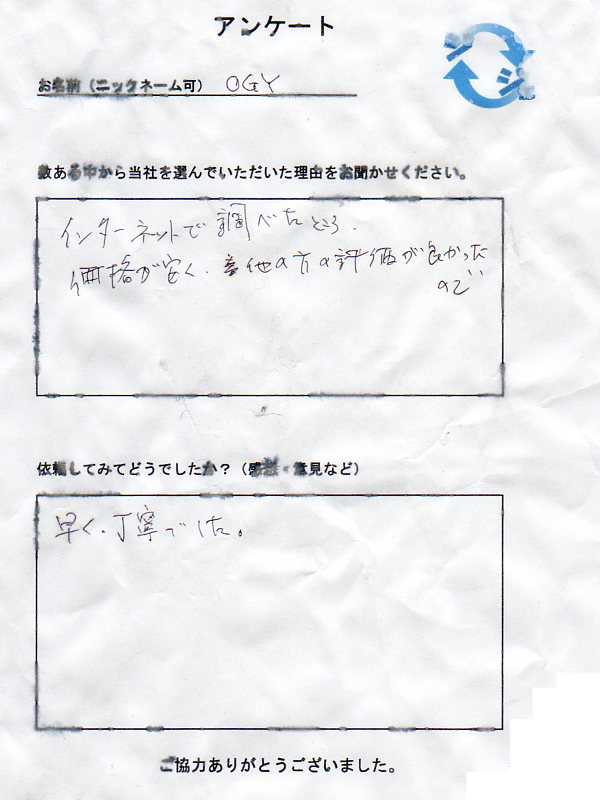 アンケート
お名前（ニックネーム可） OGY
数ある中から当社を選んでいただいた理由をお聞かせください。
インターネットで調べたところ、
価格が安く、他の方の評価が良かった
ので
依頼してみてどうでしたか？（感想・意見など）
早く、丁寧でした。
ご協力ありがとうございました。